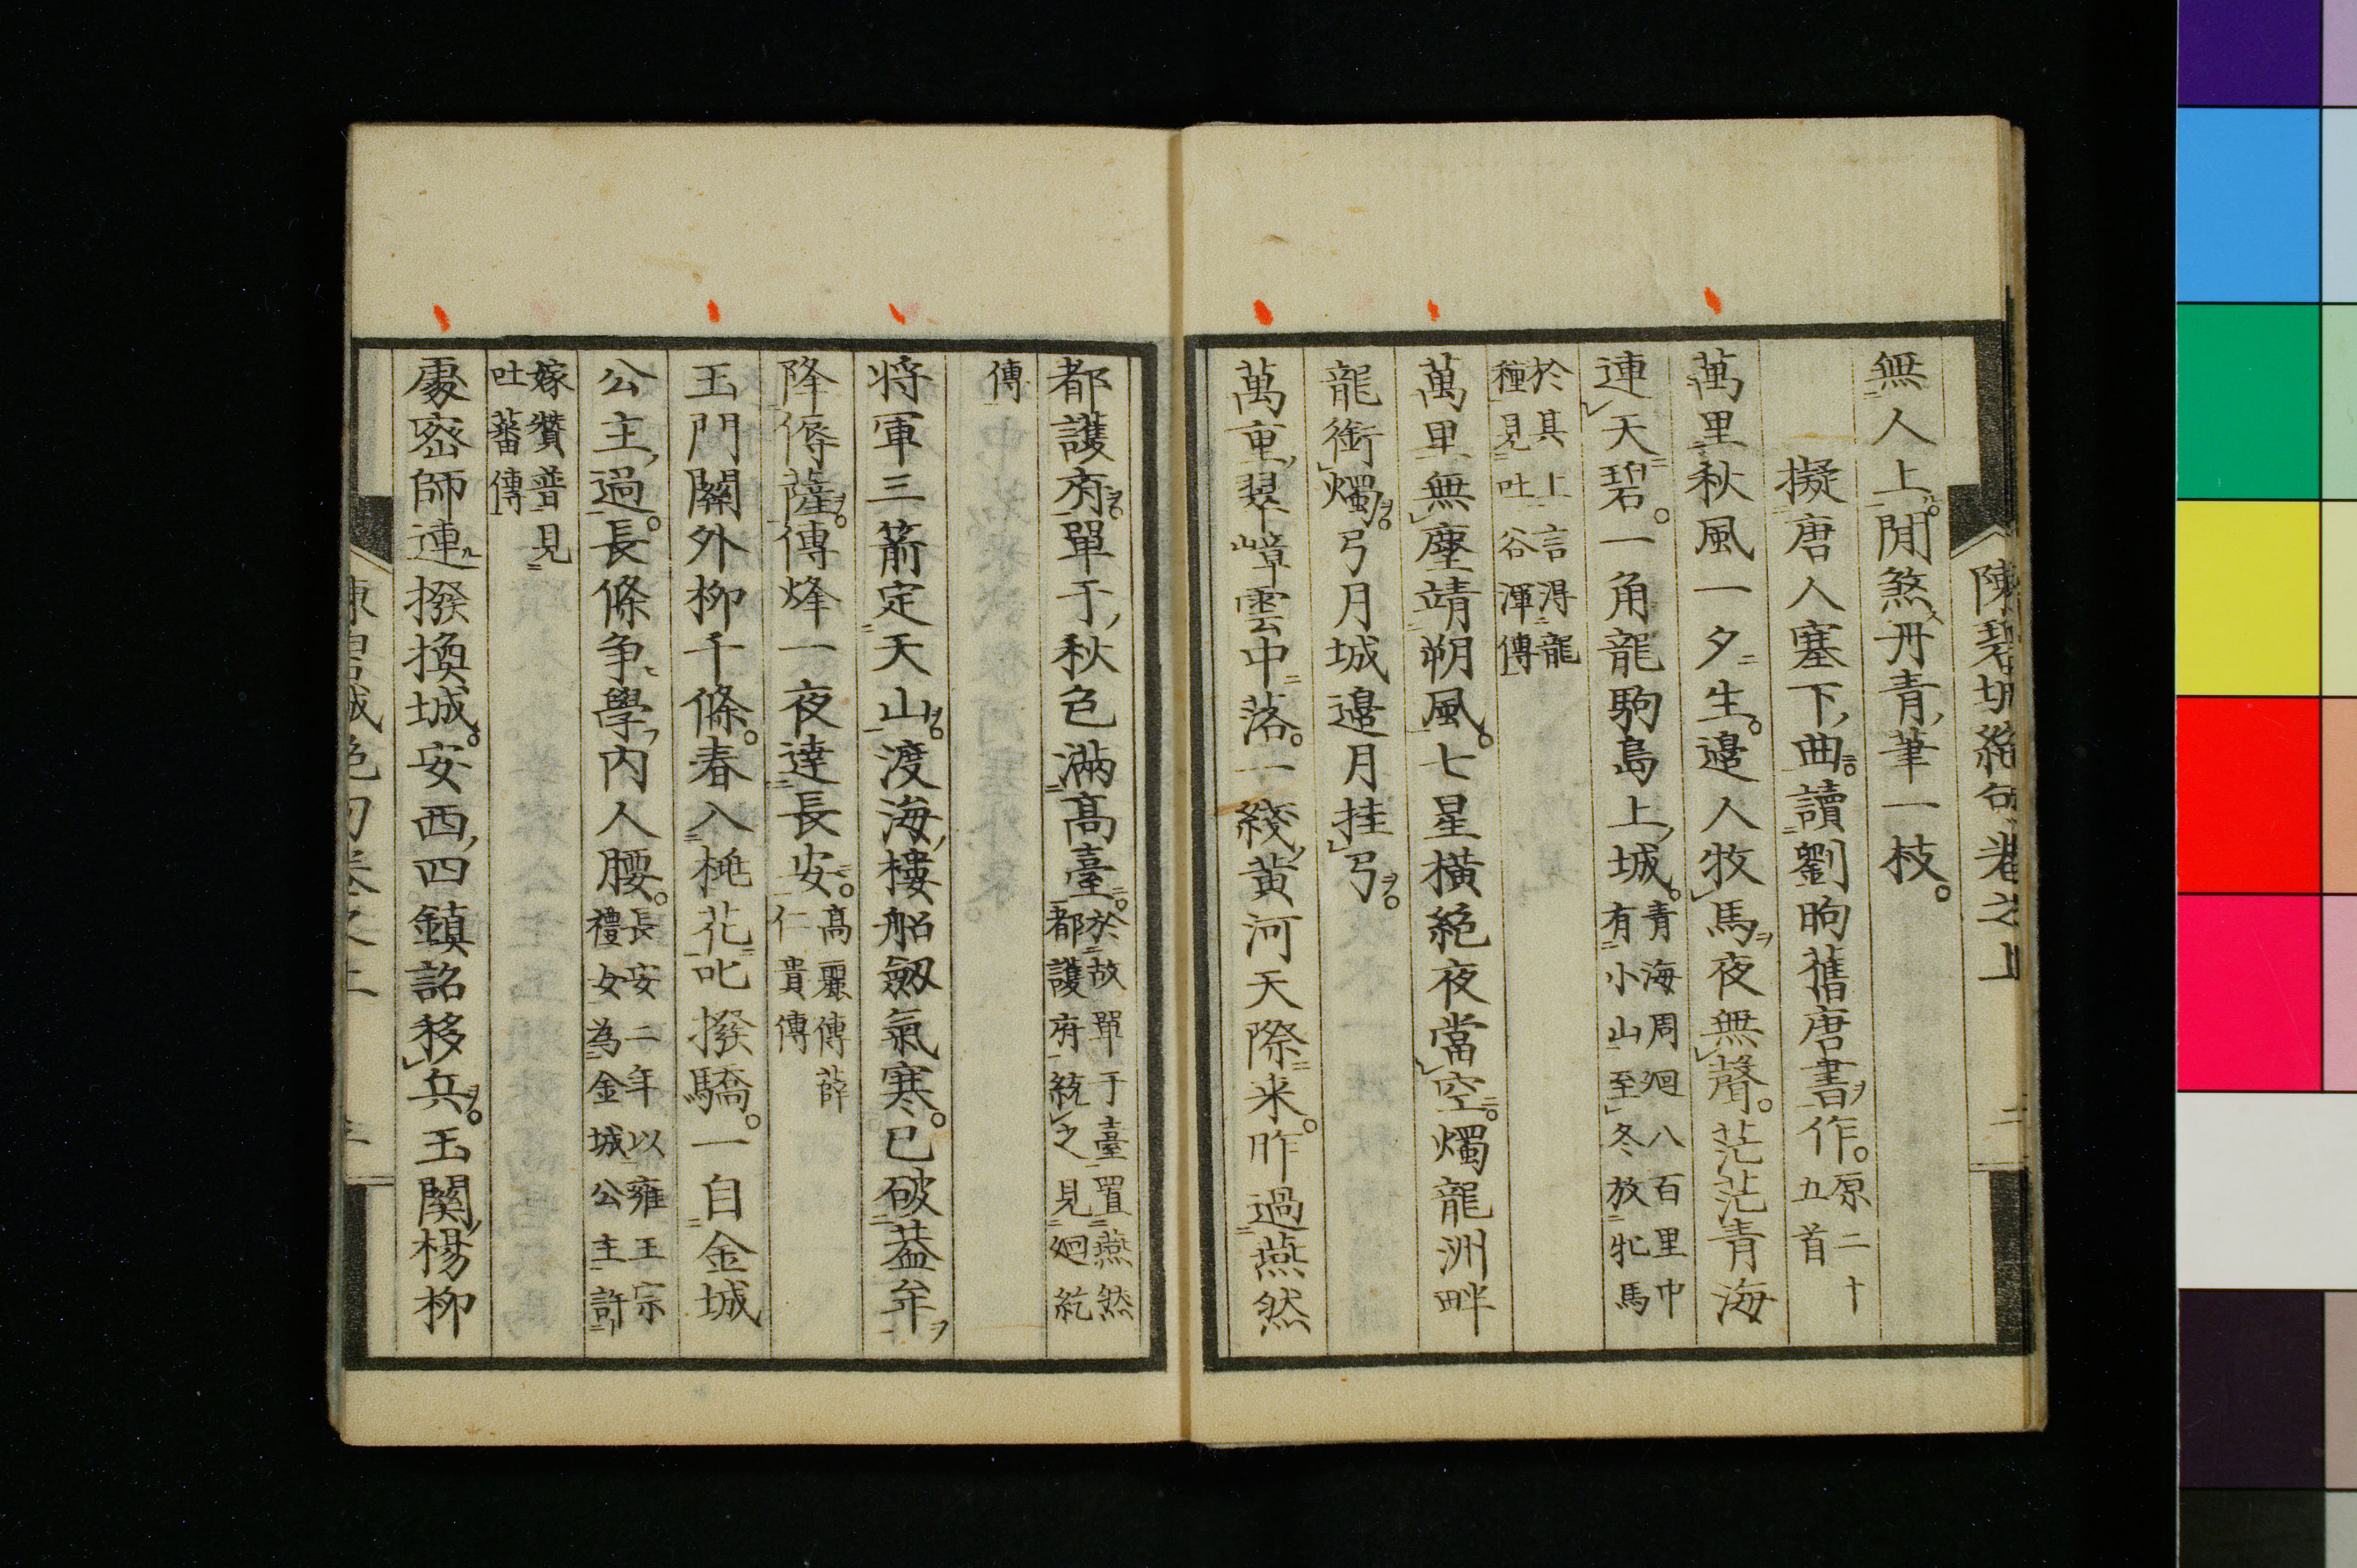 陳碧城絶句卷之上 二
無人上閒煞丹青筆一枝。
擬唐人塞下曲讀劉昫舊唐書作。原二十
五首
萬里秋風一夕生。邉人牧馬夜無聲。茫茫青海
連天碧。一角龍駒島上城。青海周廻八百里中
有小山至冬放牝馬
於其上言淂龍
種見吐谷渾傳
萬里無塵靖朔風。七星橫絶夜當空。燭龍洲畔
龍銜燭。弓月城邉月挂弓。
萬重翠嶂雲中落。一綫黃河天際来。昨過燕然
都護府。單于秋色滿髙臺。於故單于臺置燕然
都護府統之見廻紇
傳
将軍三箭定天山。渡海樓船劔氣寒。已破葢牟
降傉薩。傳烽一夜達長安。髙麗傳薛
仁貴傳
玉門關外柳千條。春入桃花叱撥驕。一自金城
公主過。長條争學内人腰。長安二年以雍王宗
禮女為金城公主許
嫁贊普見
吐蕃傳
處宻師連撥換城。安西四鎮詔移兵。玉關楊柳